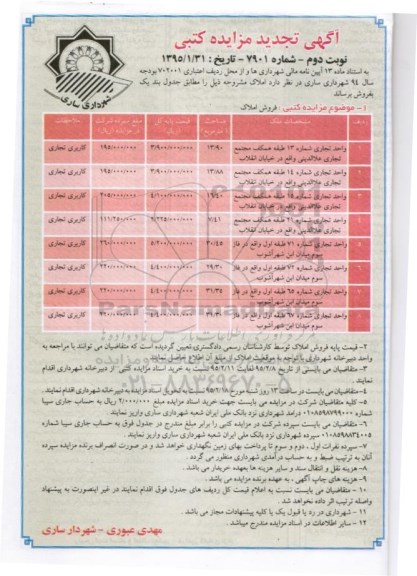 آگهی تجدید مزایده کتبی
نوبت دوم - شماره ۷۹۰۱ - تاریخ : ۱۳۹۵/۱/۳۱
به استناد ماده ۱۳ آیین نامه مالی شهرداری ها و از محل ردیف اعتباری ۷۰۲۰۰۱ بودجه
سال ۹۴ شهرداری ساری در نظر دارد املاک مشروحه ذیل را مطابق جدول بند یک
بفروش برساند
شهرداری ساری
۱- موضوع مزایده کتبی : فروش املاک
ردیف مشخصات املاک مساحت (مترمربع) قیمت پایه کل (ریال) مبلغ سپرده شرکت در مزایده (ریال) ملاحظات
۱ واحد تجاری شماره ۱۳ طبقه همکف مجتمع تجاری علاالدینی واقع در خیابان انقلاب ۱۳/۹۰ ۳/۹۰۰/۰۰۰/۰۰۰ ۱۹۵/۰۰۰/۰۰۰ کاربری تجاری
۲ واحد تجاری شماره ۱۴ طبقه همکف مجتمع تجاری علاالدینی واقع در خیابان انقلاب ۱۳/۸۸ ۳/۹۰۰/۰۰۰/۰۰۰ ۱۹۵/۰۰۰/۰۰۰ کاربری تجاری
۳ واحد تجاری شماره ۱۵ طبقه همکف مجتمع تجاری علاالدینی واقع در خیابان انقلاب ۴/۱۰۰/۰۰۰/۰۰۰ ۲۰۵/۰۰۰/۰۰۰ کاربری تجاری
۴ واحد تجاری شماره ۲۱ طبقه همکف مجتمع تجاری علاالدینی واقع در خیابان انقلاب ۷/۴۱ ۲/۲۲۵/۰۰۰/۰۰۰ ۱۱۱/۲۵۰/۰۰۰ کاربری تجاری
۵ واحد تجاری شماره ۷۱ طبقه اول واقع در فاز سوم میدان ابن شهرآشوب ۳۰/۴۵ ۵/۲۰۰/۰۰۰/۰۰۰ ۲۶۰/۰۰۰/۰۰۰ کاربری تجاری
۶ واحد تجاری شماره ۷۲ طبقه اول واقع در فاز سوم میدان ابن شهرآشوب ۲۹/۳۰ ۴/۴۰۰/۰۰۰/۰۰۰ ۲۲۰/۰۰۰/۰۰۰ کاربری تجاری
۷ واحد تجاری شماره ۶۵ طبقه اول واقع در فاز سوم میدان ابن شهرآشوب ۳۱/۳۴ ۴/۴۰۰/۰۰۰/۰۰۰ ۲۲۰/۰۰۰/۰۰۰ کاربری تجاری
۸ واحد تجاری شماره ۶۷ طبقه اول واقع در فاز سوم میدان ابن شهرآشوب ۲۲۰/۰۰۰/۰۰۰ کاربری تجاری
۲- قیمت پایه فروش املاک توسط کارشناسان رسمی دادگستری تعیین گردیده است که متقاضیان می توانند با مراجعه به
واحد دبیرخانه شهرداری با توجه به موقعیت املاک از مبلغ آن اطلاع حاصل نمایند.
۳- متقاضیان می بایستی از تاریخ ۹۵/۲/۸ لغایت ۹۵/۲/۱۱ نسبت به خرید اسناد مزایده کتبی از دبیرخانه شهرداری اقدام
نمایند.
۴- متقاضیان می بایست در ساعت ۱۳ روز شنبه مورخ نسبت به ارائه اسناد مزایده به دبیرخانه شهرداری اقدام نمایند.
۵- کلیه متقاضیان شرکت در مزایده می بایست جهت خرید اسناد مزایده مبلغ ۲/۰۰۰/۰۰۰ ریال به حساب جاری سیبا
شماره ۰۱۰۸۵۹۸۷۹۹۰۰۰ درآمد شهرداری نزد بانک ملی ایران شعبه شهرداری ساری واریز نمایند.
۶- متقاضیان می بایست سپرده شرکت در مزایده کتبی را برابر مبلغ مندرج در جدول فوق به حساب جاری سیبا شماره
۰۱۰۸۵۹۸۸۳۴۰۰۵ سپرده شهرداری نزد بانک ملی ایران شعبه شهرداری ساری واریز نمایند.
۷- سپرده نفرات اول ، دوم و سوم تا پرداخت بهای زمین نگهداری خواهد شد و در صورت انصراف برنده مزایده سپرده
آنان به ترتیب ضبط و به حساب درآمدی شهرداری منظور می گردد.
۸- هزینه نقل و انتقال سند و سایر هزینه ها بعهده خریدار می باشد.
۹- هزینه های چاپ آگهی ، به عهده برنده مزایده می باشد.
۱۰- متقاضیان می بایست نسبت به اعلام قیمت کل ردیف های جدول فوق اقدام نمایند در غیر اینصورت به پیشنهاد
واصله ترتیب اثر داده نخواهد شد.
۱۱- شهرداری در رد یا قبول یک یا کلیه پیشنهادات مجاز می باشد.
۱۲- سایر اطلاعات در اسناد مزایده مندرج میباشد.
مهدی عبوری - شهردار ساری
ParsNamadData
۰۲۱-۸۸۳۴۹۶۷۰-۵